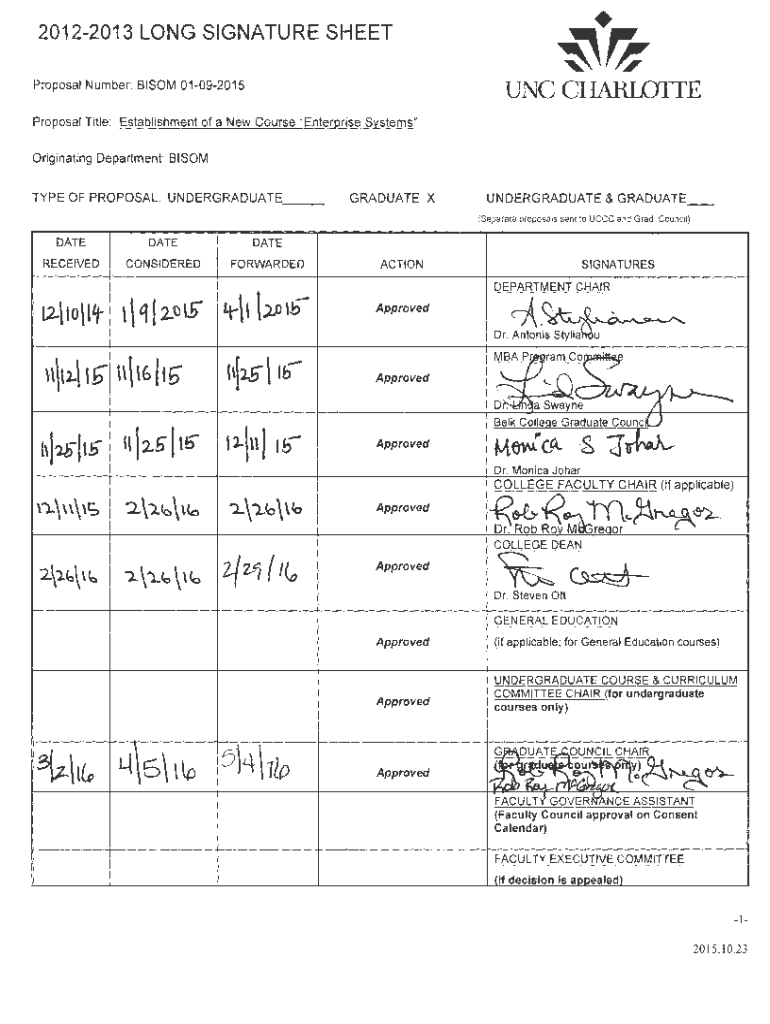 2012-2013 LONG SIGNATURE SHEET
UNC CHARLOTTE
Proposal Number: BISOM 01-09-2015
Proposal Title: Establishment of a New Course "Enterprise Systems"
Originating Department: BISOM
TYPE OF PROPOSAL: UNDERGRADUATE______ GRADUATE X UNDERGRADUATE & GRADUATE___
(Separate proposals sent to UCCC and Grad. Council)
DATE RECEIVED DATE CONSIDERED DATE FORWARDED ACTION SIGNATURES
DEPARTMENT CHAIR
12/10/14 1/9/2015 4/1/2015 Approved A. Stylianou
Dr. Antonis Stylianou
MBA Program Committee
11/12/15 11/16/15 11/25/15 Approved Linda Swayne
Dr. Linda Swayne
Belk College Graduate Council
11/25/15 11/25/15 12/11/15 Approved Monica S Johar
Dr. Monica Johar
COLLEGE FACULTY CHAIR (if applicable)
12/11/15 2/26/16 2/26/16 Approved Rob Roy McGregor
Dr. Rob Roy McGregor
COLLEGE DEAN
2/26/16 2/26/16 2/29/16 Approved
Dr. Steven Ott
GENERAL EDUCATION
Approved (if applicable; for General Education courses)
UNDERGRADUATE COURSE & CURRICULUM
COMMITTEE CHAIR (for undergraduate
Approved courses only)
GRADUATE COUNCIL CHAIR
(for graduate courses only)
3/2/16 4/5/16 5/4/16 Approved Rob Roy McGregor
Rob Roy McGregor
FACULTY GOVERNANCE ASSISTANT
(Faculty Council approval on Consent
Calendar)
FACULTY EXECUTIVE COMMITTEE
(if decision is appealed)
-1-
2015.10.23